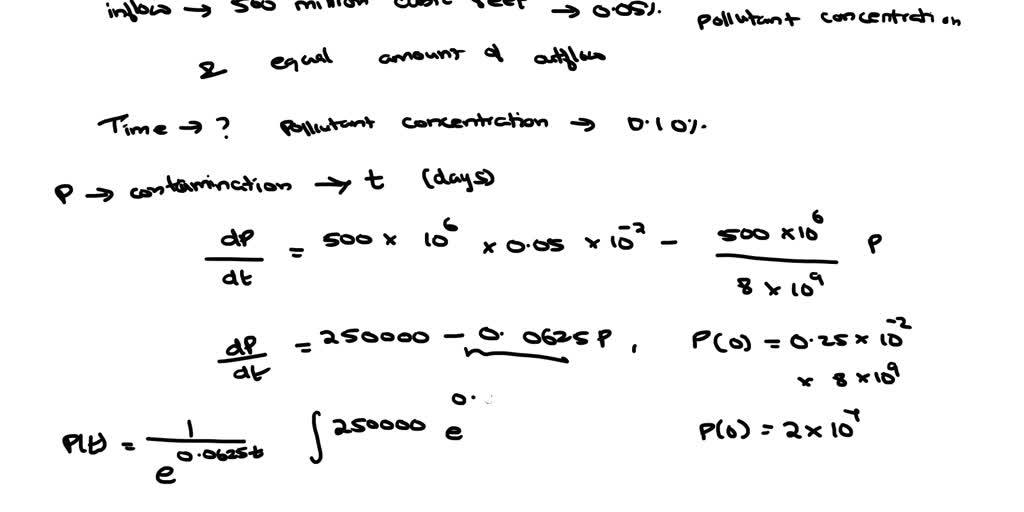 inflow → 500 million cubic feet → 0.05%. pollutant concentration
& equal amount of outflow
Time → ? pollutant concentration → 0.10%.
P → contamination → t (days)
dP/dt = 500 × 10^6 × 0.05 × 10^-2 - (500 × 10^6)/(8 × 10^9) P
dP/dt = 250000 - 0.0625P, P(0) = 0.25 × 10^-2
× 8 × 10^9
P(t) = 1/e^0.0625t ∫ 250000 e^0. P(0) = 2 × 10^7